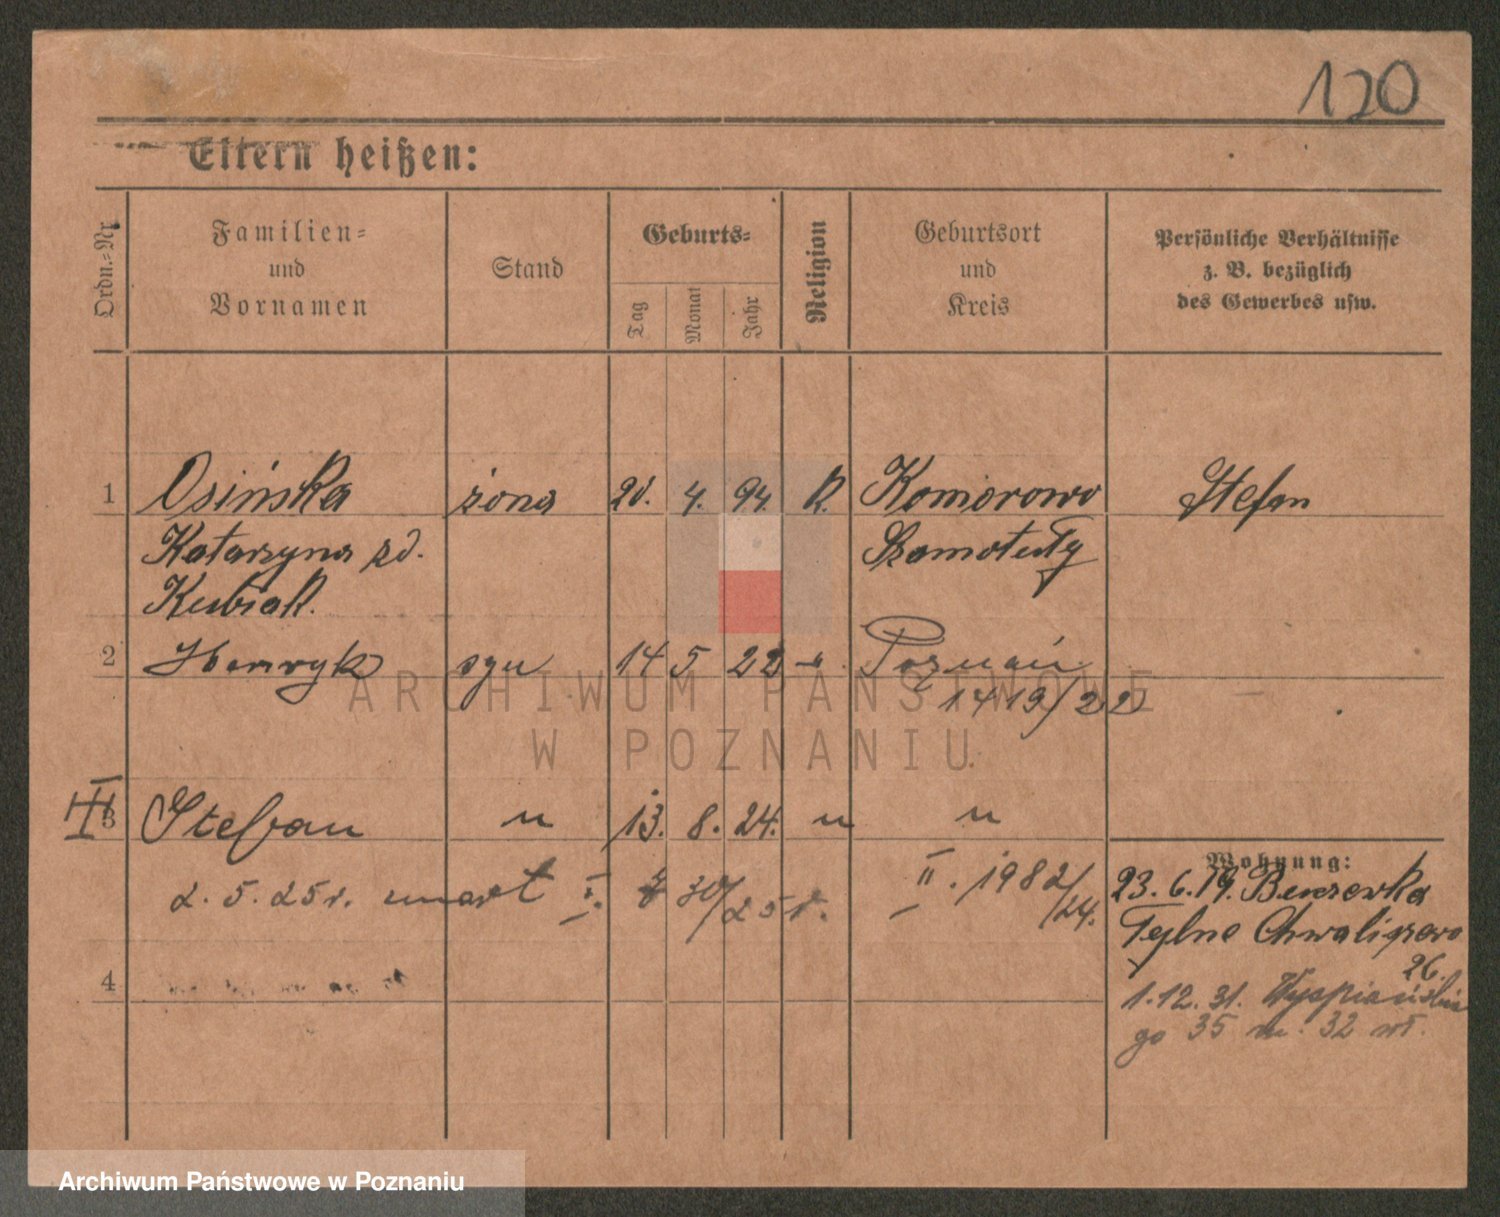 120
Eltern heißen:
Ordn.=Nr.
Familien=
und
Vornamen
Stand
Geburts=
Tag
Monat
Jahr
Religion
Geburtsort
und
Kreis
Persönliche Verhältnisse
z. B. bezüglich
des Gewerbes usw.
1 Osińska żona 20. 4. 94. R. Komorowo Stefan
Katarzyna zd. Szamotuły
Kubiak.
2 Henryk syn 14 5 22 Poznań
1419/22
3 Stefan " 13. 8. 24. " "
2. 5. 25 r. umarł I. 30/25 r. II. 1982/24.
Wohnung:
23. 6. 19.
Tylne Chwaliszewo
26.
4
1. 12. 31. Wyspiańskie
go 35 m. 32
ARCHIWUM PAŃSTWOWE
W POZNANIU
Archiwum Państwowe w Poznaniu